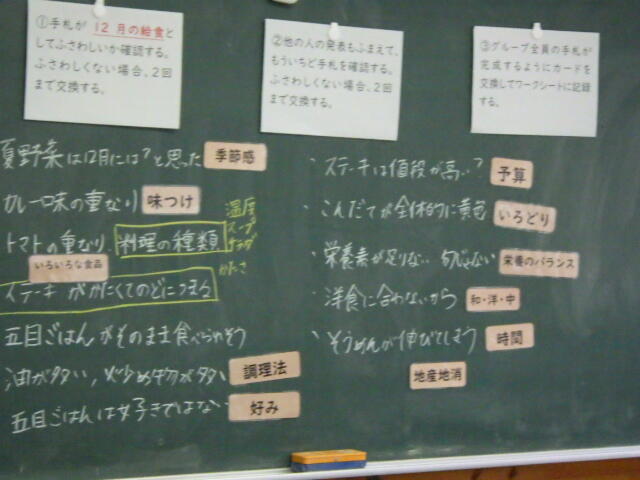 ①手札が12月の給食と
してふさわしいか確認する。
ふさわしくない場合、2回
まで交換する。
②他の人の発表もふまえて、
もういちど手札を確認する。
ふさわしくない場合、2回
まで交換する。
③グループ全員の手札が
完成するようにカードを
交換してワークシートに記録
する。
夏野菜は12月には?と思った 季節感
カレー味の重なり 味つけ
トマトの重なり 料理の種類
温度
スープ
サラダ
かたさ
いろいろな食品
ステーキがかたくてのどにつまる
五目ごはんがそのまま食べられそう
油が多い,炒め物が多い 調理法
五目ごはんは好きではない 好み
ステーキは値段が高い? 予算
こんだてが全体的に黄色 いろどり
栄養素が足りない 旬じゃない 栄養のバランス
洋食に合わないから 和・洋・中
そうめんが伸びてしまう 時間
地産地消